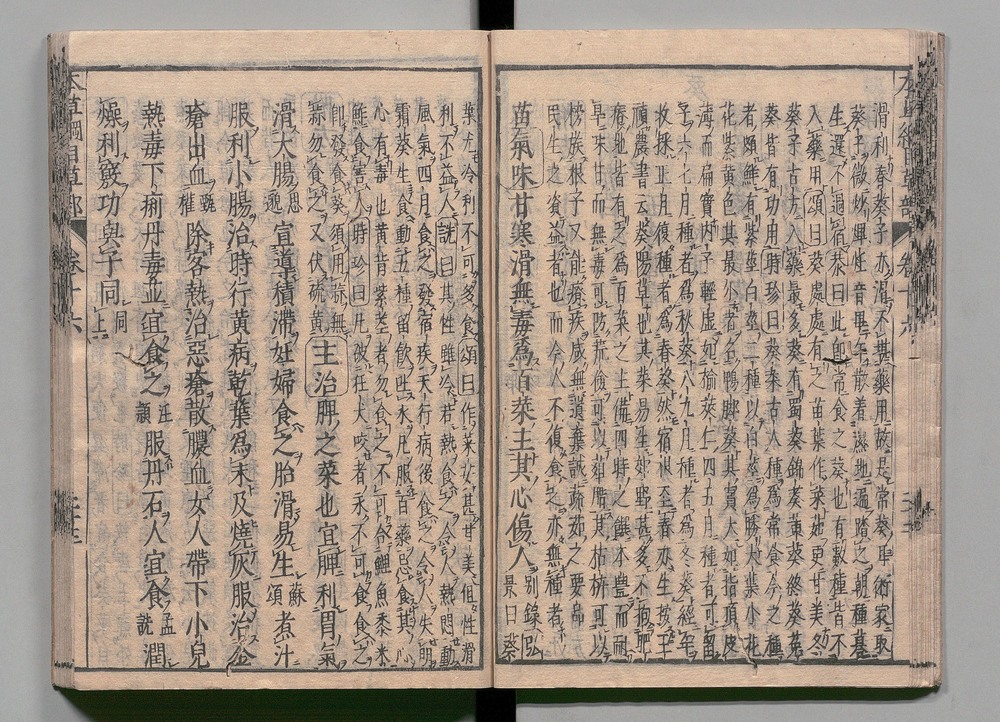 滑利春葵子亦滑不堪藥用故是常葵耳術家取
葵子微炒熚𤊻音畢乍散着濕地遍踏之朝種暮
生遠不過宿恭曰此即常食之葵也有數種皆不
入藥用頌曰葵處處有之苗葉作菜茹更甘美冬
葵子古方入藥最多葵有蜀葵錦葵黃葵終葵菟
葵皆有功用時珍曰葵菜古人種為常食今之種
者頗鮮有紫莖白莖二種以白莖為勝大葉小花
花紫黃色其最小者名鴨脚葵其實大如指頂皮
薄而扁實內子輕虛如榆莢仁四五月種者可留
子六七月種者為秋葵八九月種者為冬葵經年
收採正月復種者為春葵然宿根至春亦生按王
禎農書云葵陽草也其菜易生郊野甚多不拘肥
瘠地皆有之為百菜之主備四時之饌本豐而耐
旱味甘而無毒可防荒儉可以葅腊其枯枿可以
榜簇根子又能療疾咸無遺棄誠蔬茹之要品
民生之資益者也而今人不復食之亦無種者
苗氣味甘寒滑無毒為百菜主其心傷人別錄弘景曰葵
葉尤冷利不可多食頌曰作菜茹甚甘美但性滑
利不益人詵曰其性雖冷若熱食之令人熱悶動
風氣四月食之發宿疾天行病後食之令人失明
霜葵生食動五種留飲吐水凡服百藥忌食其心
心有毒也黃背紫莖者勿食之不可合鯉魚黍米
鮓食害人時珍曰凡被狂犬咬者永不可食食之
即發食葵須用蒜無蒜勿食之又伏硫黃主治脾之菜也宜脾利胃氣
滑大腸思邈宣導積滯妊婦食之胎滑易生蘇頌煮汁
服利小腸治時行黃病乾葉為末及燒灰服治金
瘡出血甄權除客熱治惡瘡散膿血女人帶下小兒
熱毒下痢丹毒並宜食之汪穎服丹石人宜食孟詵潤
燥利竅功與子同同上
本草綱目草部 卷十六